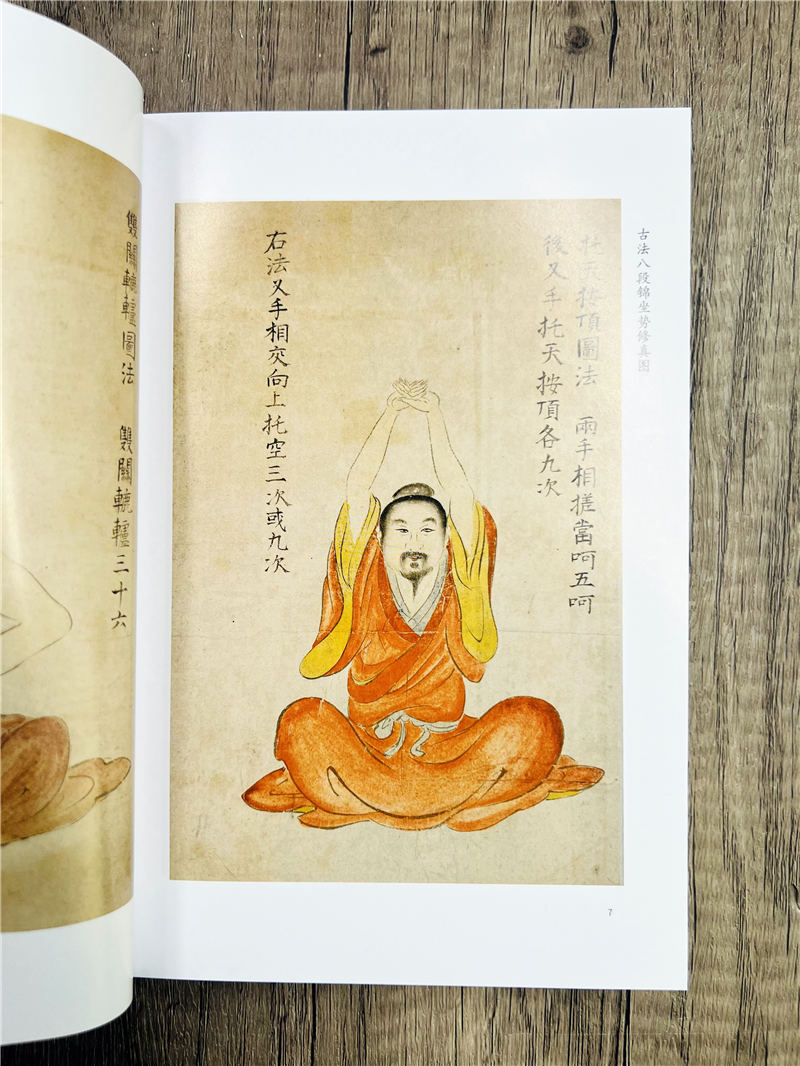 古法八段锦坐势修真图
托天按頂圖法　兩手相搓當呵五呵
後叉手托天按頂各九次
右法叉手相交向上托空三次或九次
7
雙關轆轤圖法　雙關轆轤三十六